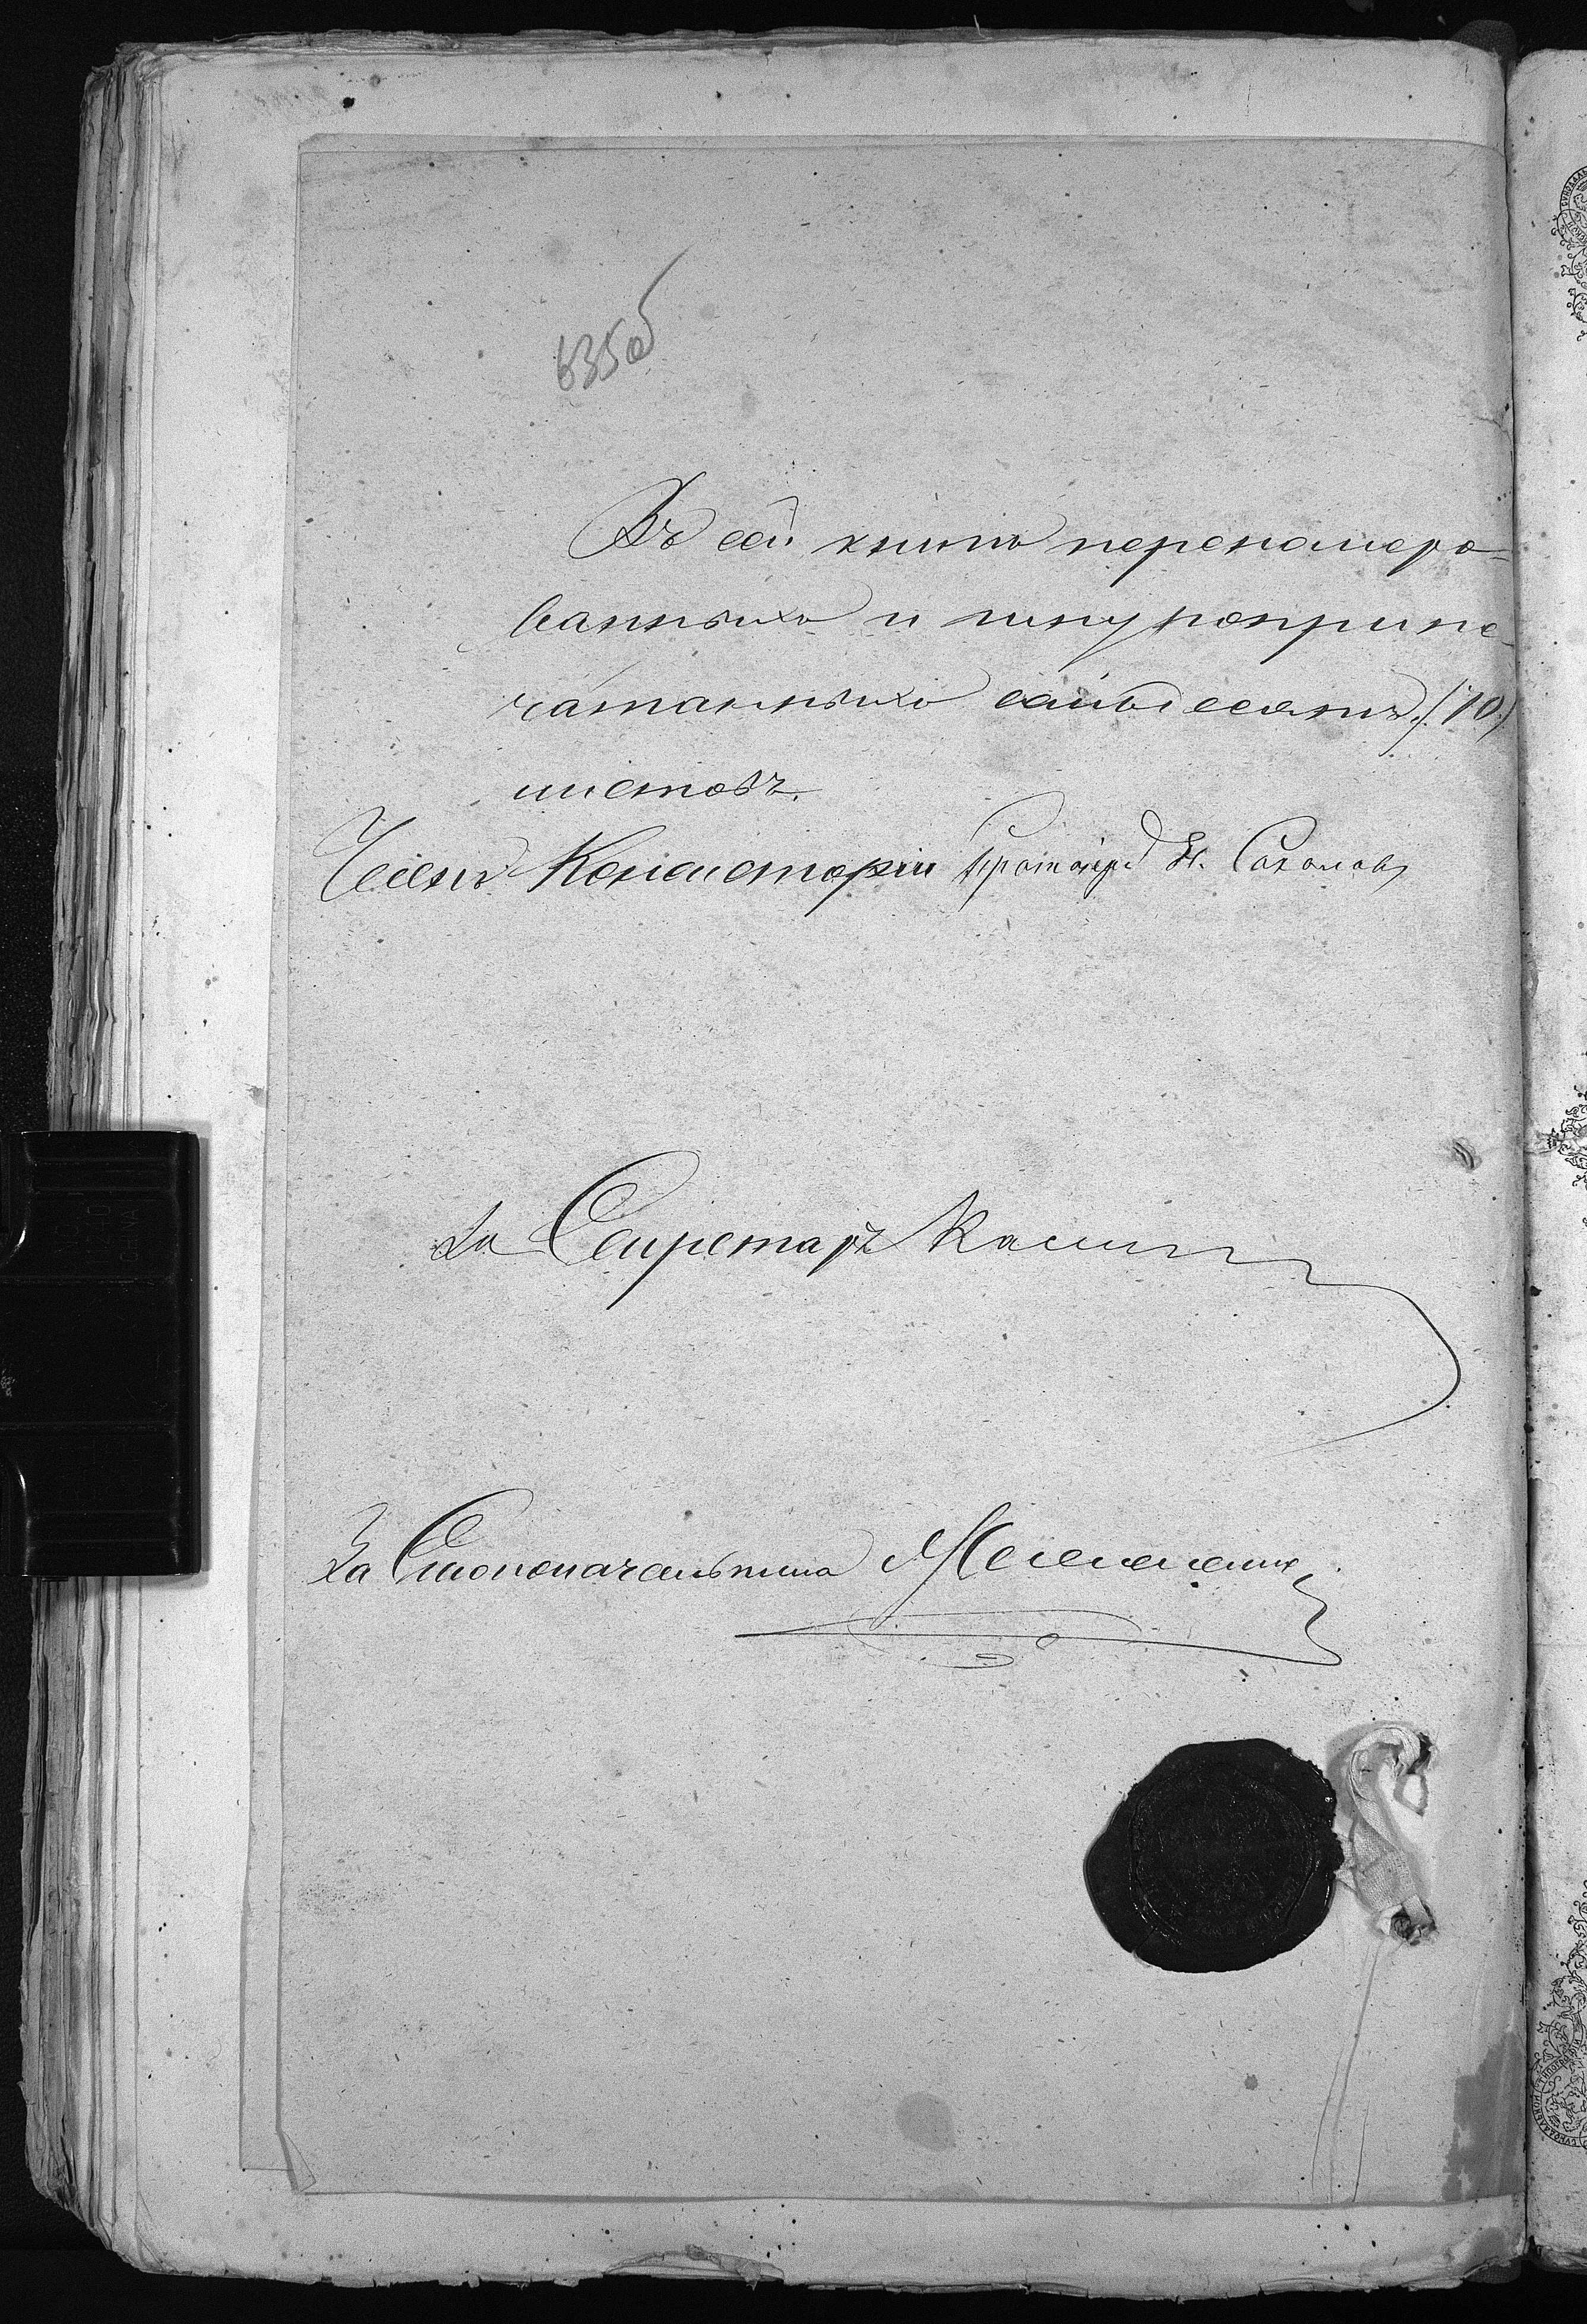 635об
Въ сей книгѣ перенумеро-
ванныхъ и шнуроприпе-
чатанныхъ семьдесятъ (70)
листовъ.
Членъ Консисторіи Протоіерей Н. Соколовъ
За Секретаря
За Столоначальника